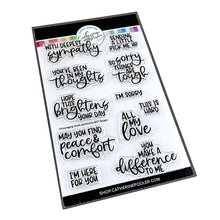 WITH DEEPEST
sympathy
SENDING
A LITTLE
PICK ME UP
YOU'VE BEEN
IN MY
thoughts
SO
SORRY
THINGS
ARE
tough
HOPE
THIS
brightens
YOUR DAY
I'M SORRY
THIS IS
HARD
MAY YOU FIND
peace &
comfort
ALL
MY
LOVE
I'M HERE
FOR YOU
YOU
MAKE A
difference
TO ME
SHOP.CATHERINEPOOLER.COM